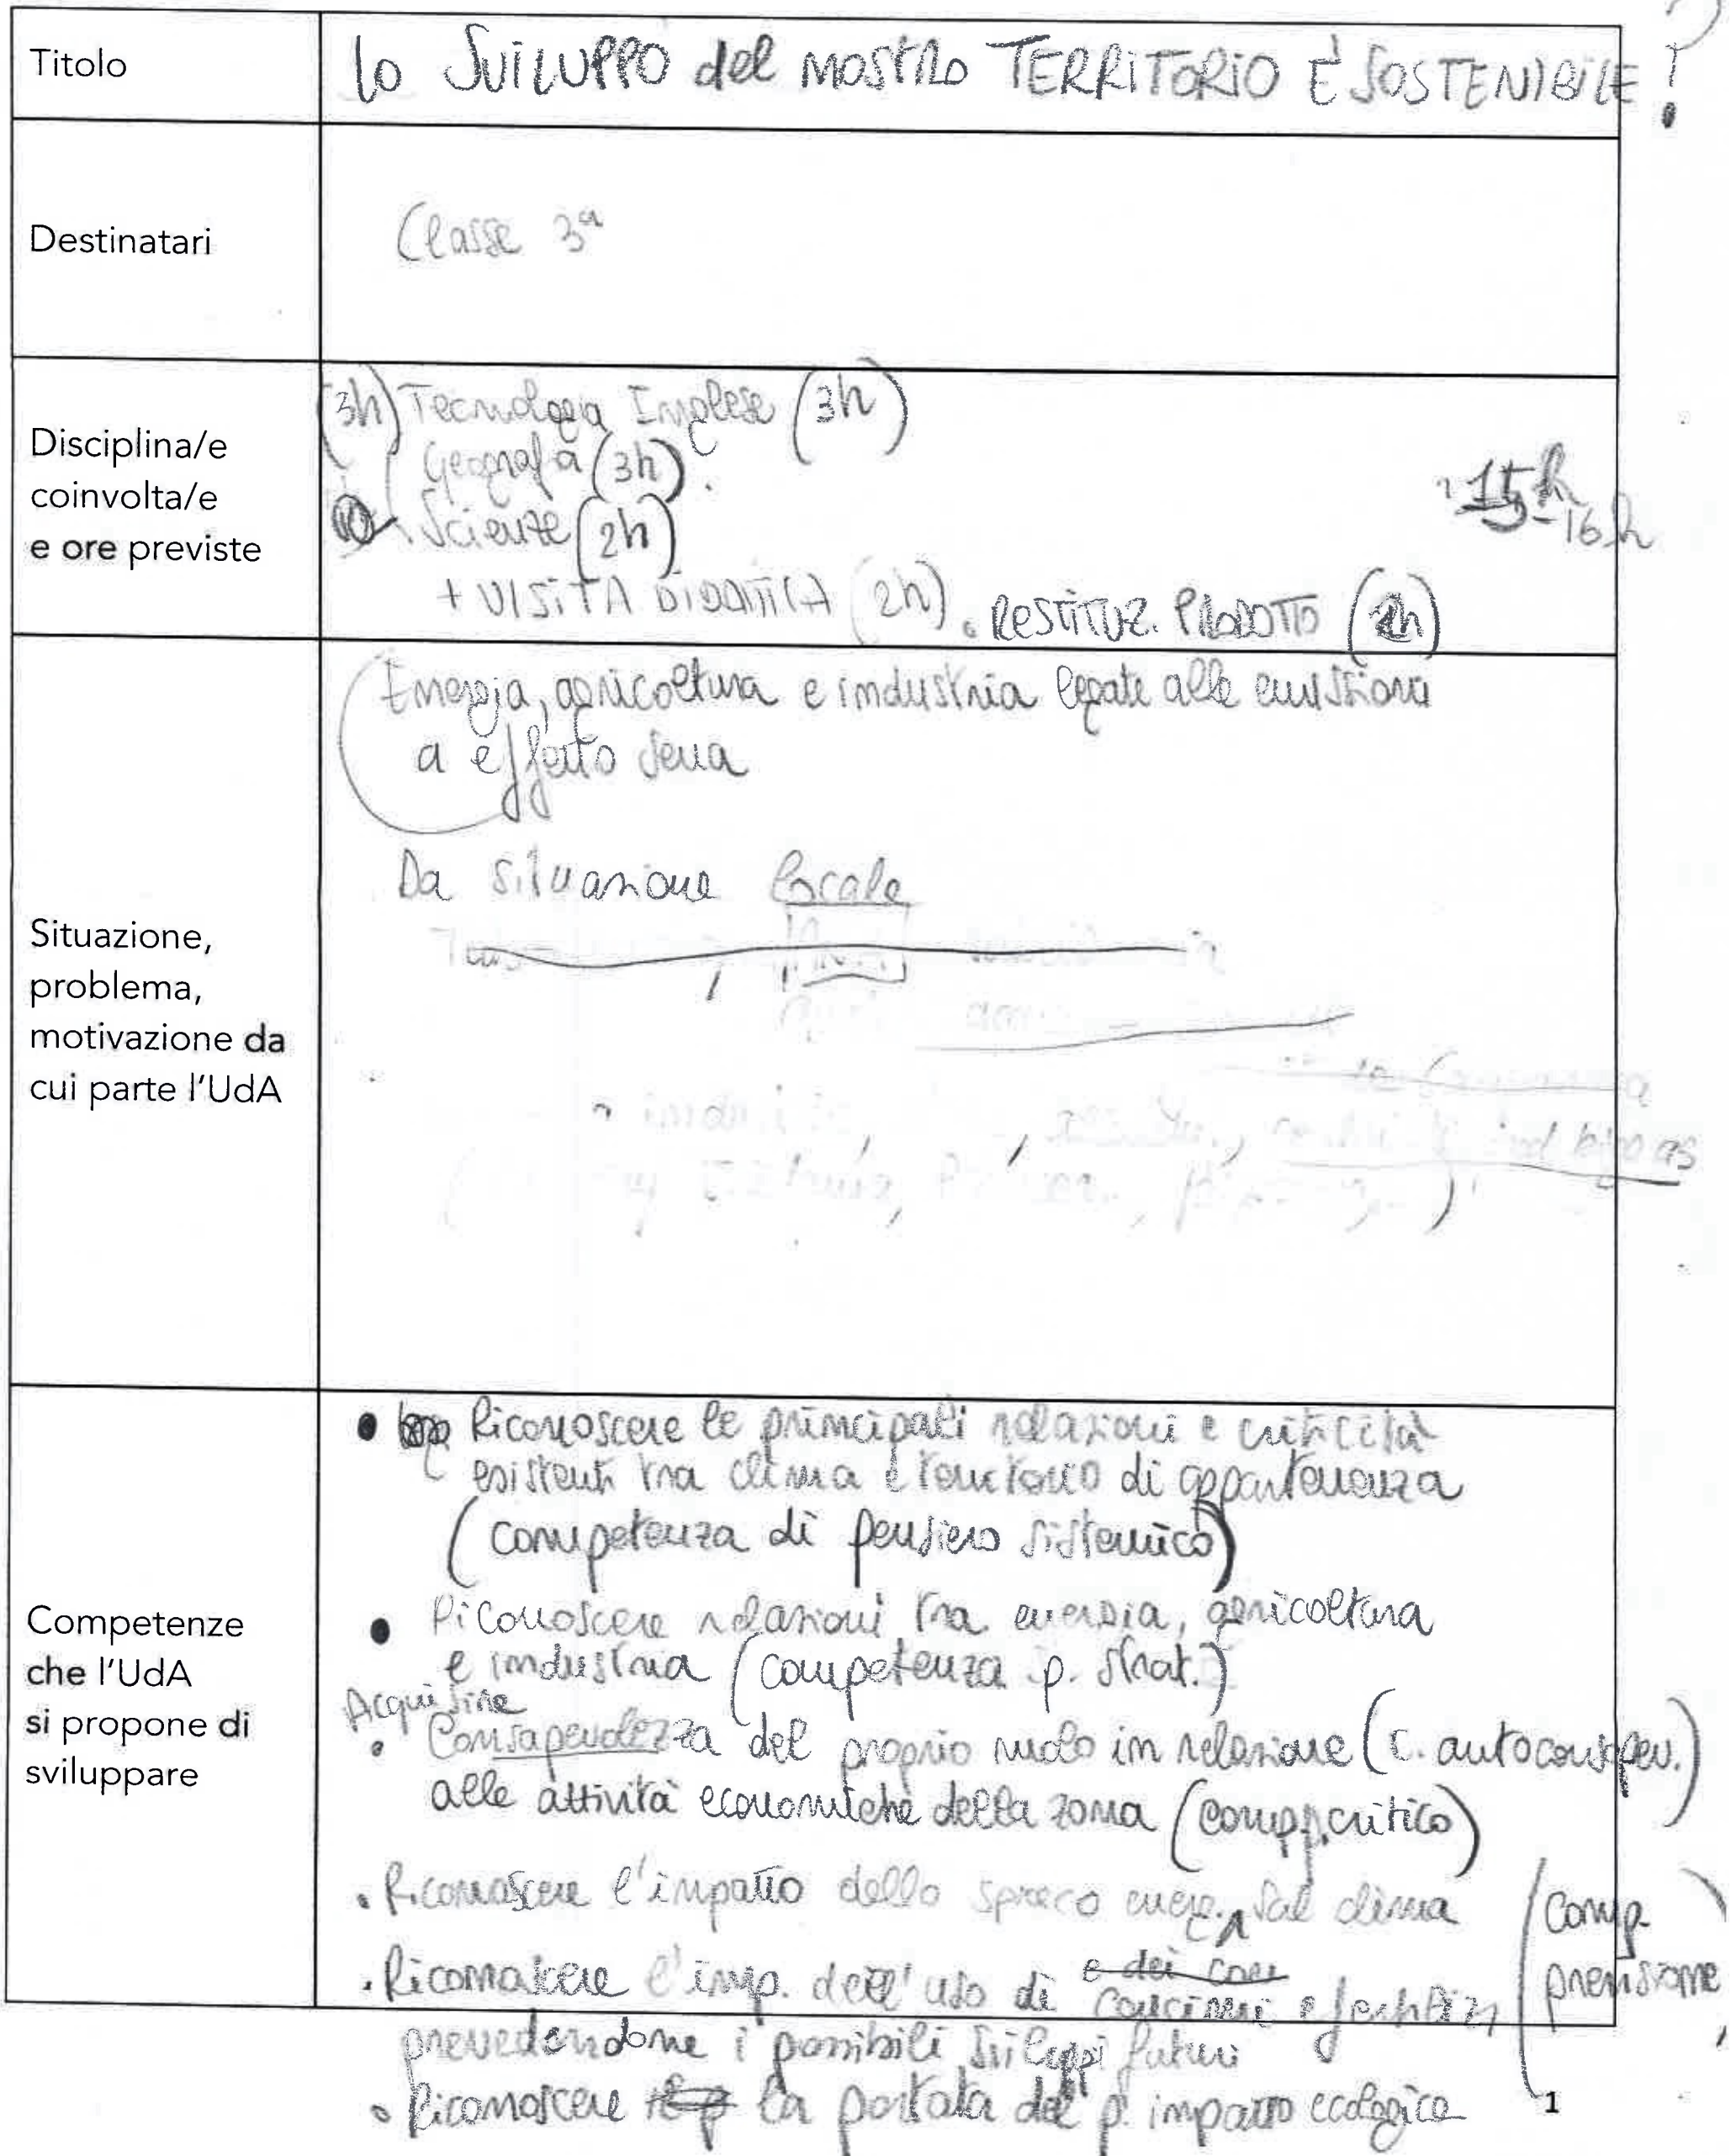 Titolo
lo SVILUPPO del NOSTRO TERRITORIO È SOSTENIBILE ?
Destinatari
Classe 3ª
Disciplina/e
coinvolta/e
e ore previste
(3h) Tecnologia Inglese (3h)
Geografia (3h)
Scienze (2h)
15-16 h
+ VISITA DIDATTICA (2h) . RESTITUZ. PRODOTTO (2h)
Situazione,
problema,
motivazione da
cui parte l'UdA
Energia, agricoltura e industria legate alle emissioni
a effetto serra
Da situazione locale
Competenze
che l'UdA
si propone di
sviluppare
• Riconoscere le principali relazioni e criticità
esistenti tra clima e territorio di appartenenza
(competenza di pensiero sistemico)
• Riconoscere relazioni tra energia, agricoltura
e industria (competenza p. strat.)
Acquisire
• Consapevolezza del proprio ruolo in relazione (c. autoconsapev.)
alle attività economiche della zona (comp. p. critico)
• Riconoscere l'impatto dello spreco energ. sul clima
• Riconoscere l'imp. dell'uso di e dei conc concimi e fertilizz
(comp.
previsione)
prevedendone i possibili sviluppi futuri
• Riconoscere la portata del p. impatto ecologico
1